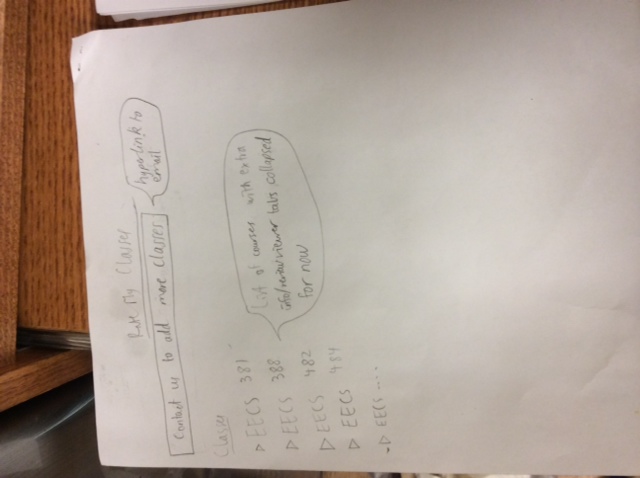 Rate My Classes
Contact us to add more classes
hyperlink to
email
Classes
EECS 381
EECS 388
EECS 482
EECS 484
EECS ....
List of courses with extra
info/review viewer tabs collapsed
for now